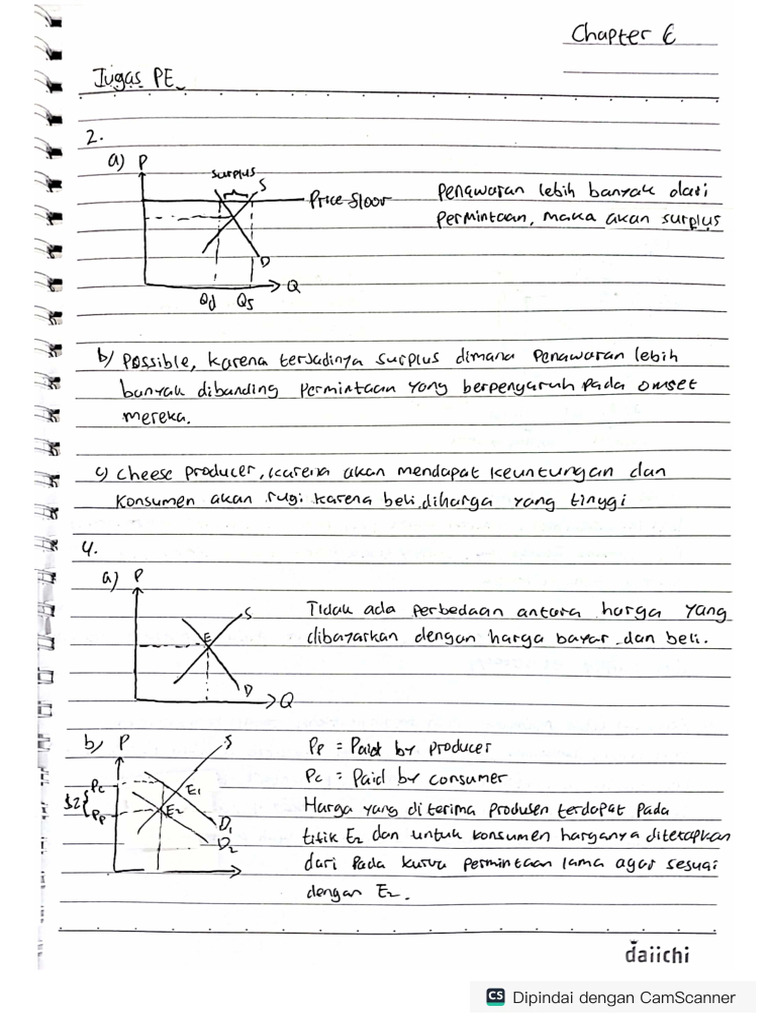 Chapter 6
Tugas PE
2.
a) P
surplus
S
Price floor
D
Q
Qd Qs
Penawaran lebih banyak dari
permintaan, maka akan surplus
b) Possible, karena terjadinya surplus dimana Penawaran lebih
banyak dibanding Permintaan yang berpengaruh pada omset
mereka.
c) Cheese producer, karena akan mendapat keuntungan dan
konsumen akan rugi karena beli diharga yang tinggi
4.
a) P
S
E
D
Q
Tidak ada perbedaan antara harga yang
dibayarkan dengan harga bayar dan beli.
b) P
S
Pc
E1
$2
Pp
E2
D1
D2
Pp = Paid by producer
Pc = Paid by consumer
Harga yang diterima produsen terdapat pada
titik E2 dan untuk konsumen harganya ditetapkan
dari pada kurva permintaan lama agar sesuai
dengan E2.
daiichi
CS Dipindai dengan CamScanner